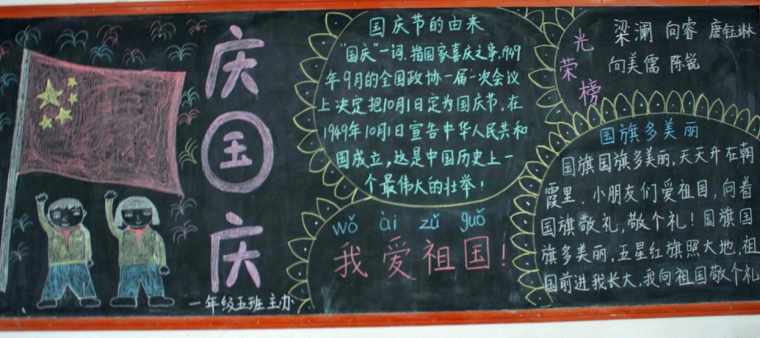 庆
国
庆
一年级五班 主办
国庆节的由来
"国庆"一词,指国家喜庆之事,1949
年9月的全国政协一届一次会议
上决定把10月1日定为国庆节,在
1949年10月1日宣告中华人民共和
国成立,这是中国历史上一
个最伟大的壮举!
wǒ ài zǔ guó
我爱祖国!
光荣榜
梁澜 向睿 唐钰琳
向美儒 陈锐
国旗多美丽
国旗国旗多美丽,天天升在朝
霞里,小朋友们爱祖国,向着
国旗敬礼,敬个礼!国旗国
旗多美丽,五星红旗照大地,祖
国前进我长大,我向祖国敬个礼